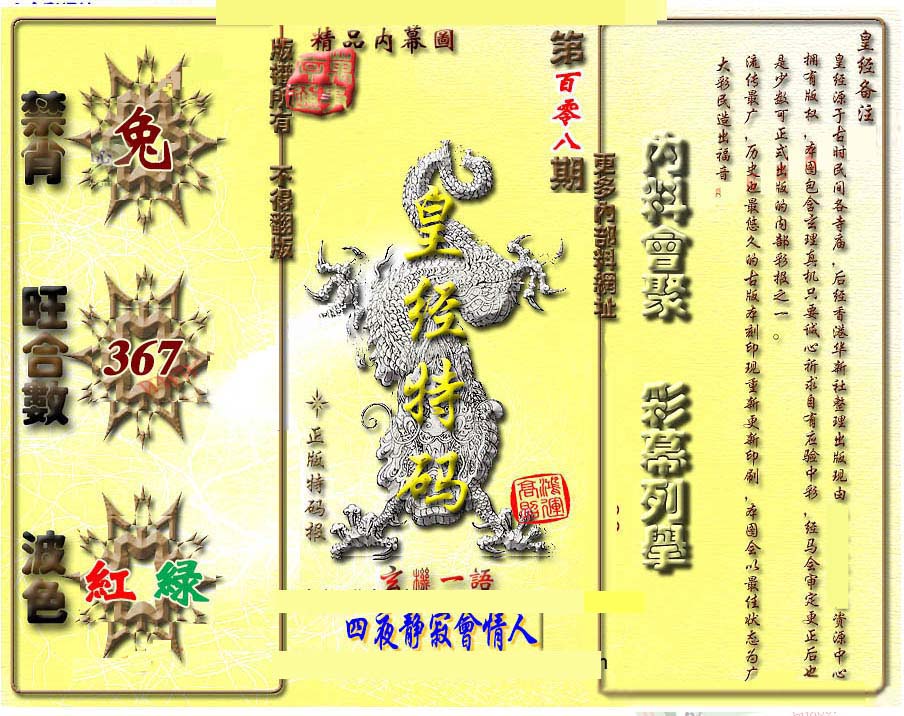 精品内幕圖
第百零八期
版權所有 不得翻版
更多內部料網址
皇经特码
正版特码报
鴻運高照
玄機一語
四夜靜寂會情人
禁肖
兔
旺合數
367
波色
紅 綠
内料會聚
彩幕列舉
皇经备注
皇经源于古时民间各寺庙,后经香港华新社整理出版现由
资源中心
拥有版权,本图包含玄理真机只要诚心祈求自有应验中彩,经马会审定更正后也
是少数可正式出版的内部彩报之一。
流传最广,历史也最悠久的古版本刻印现重新更新印刷,本图会以最佳状态为广
大彩民造出福音